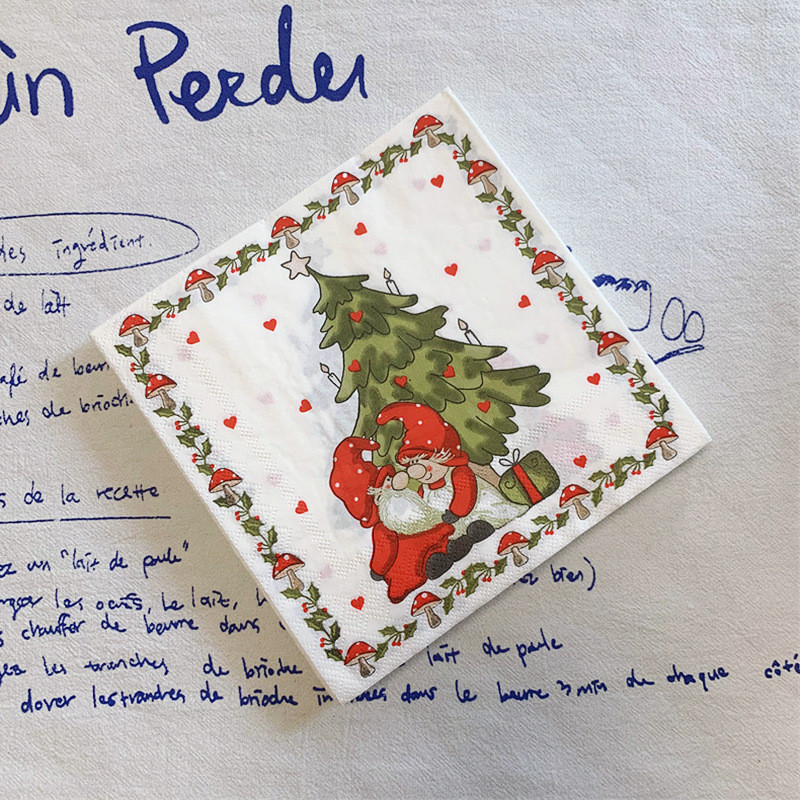 Perdu
des ingrédient.
de lait
café de beur
ches de brioch
s de la recette
un "lait de poule"
les oeufs, le lait,
bien)
chauffer de beurre dans
les tranches de brioche lait de poule
dorer les tranches de brioche dans le beurre 3 min de chaque côté